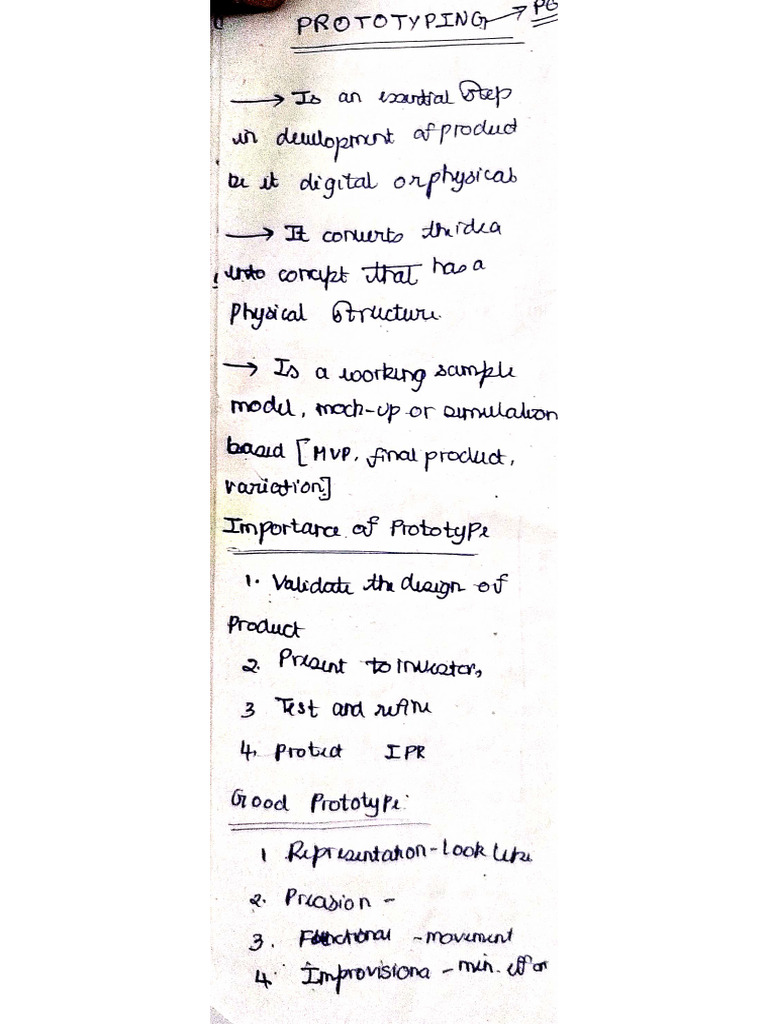 PROTOTYPING → PG
→ Is an essential step
in development of product
be it digital or physical
→ It converts the idea
into concept that has a
physical structure.
→ Is a working sample
model, mock-up or simulation
based [MVP, final product,
variation]
Importance of Prototype
1. Validate the design of
product
2. Present to investors,
3 Test and refine
4. protect IPR
Good Prototype:
1 Representation - look like
2. Precision -
3. Functional - movement
4. Improvisiona - min. effor